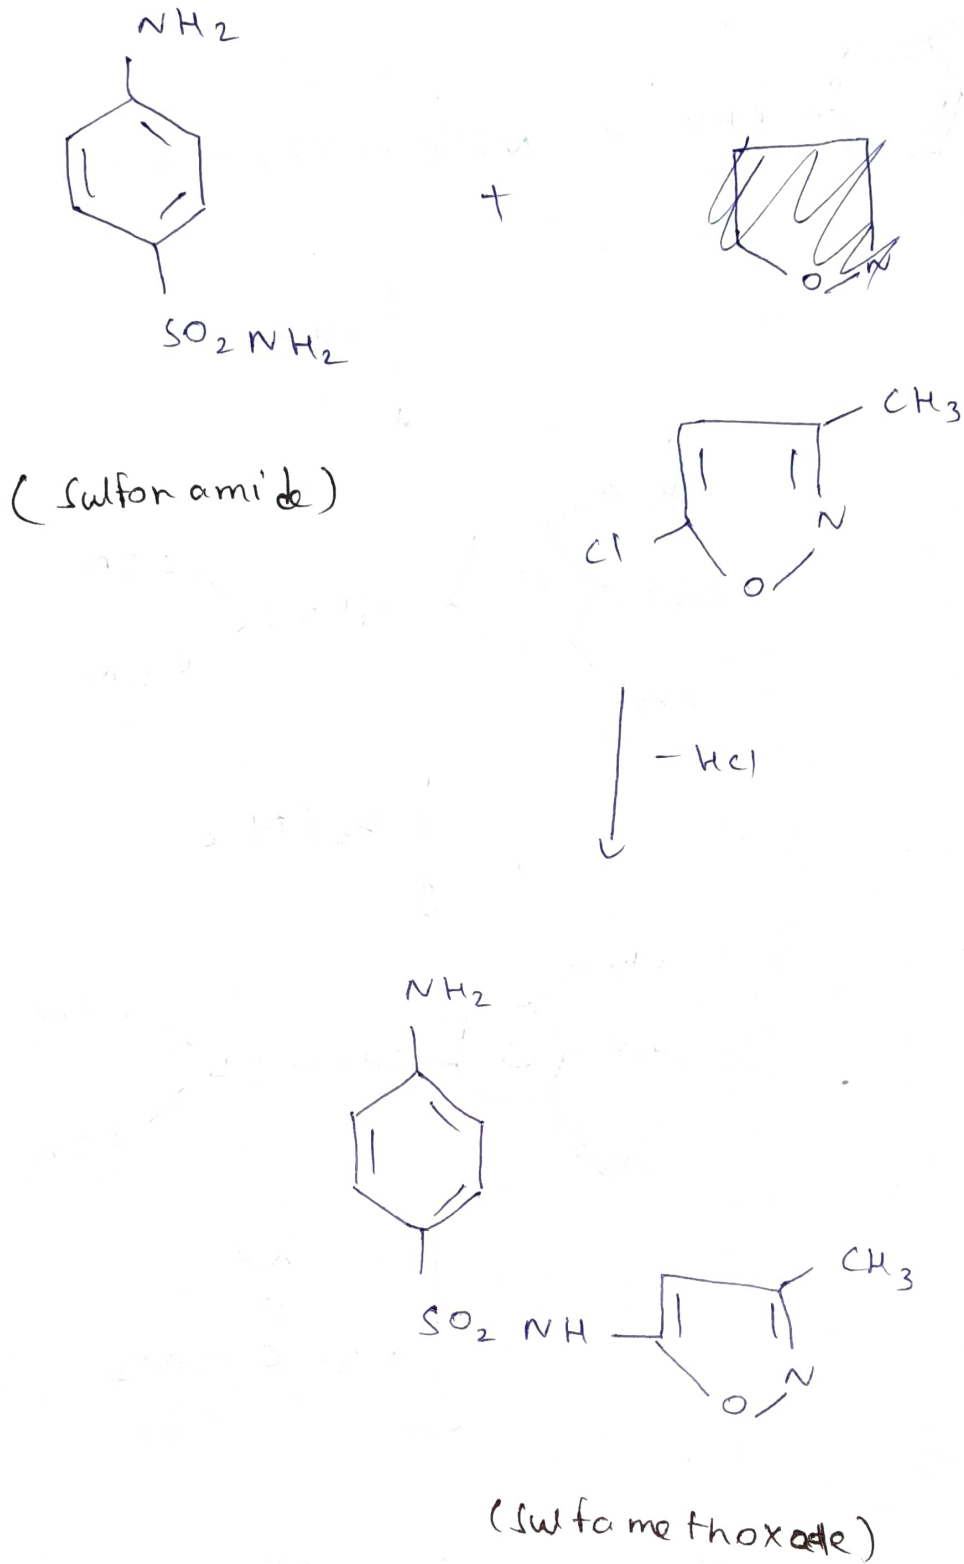 NH2
+
O N
SO2NH2
CH3
(Sulfonamide)
N
Cl
O
- HCl
NH2
CH3
SO2 NH
N
O
(Sulfamethoxade)